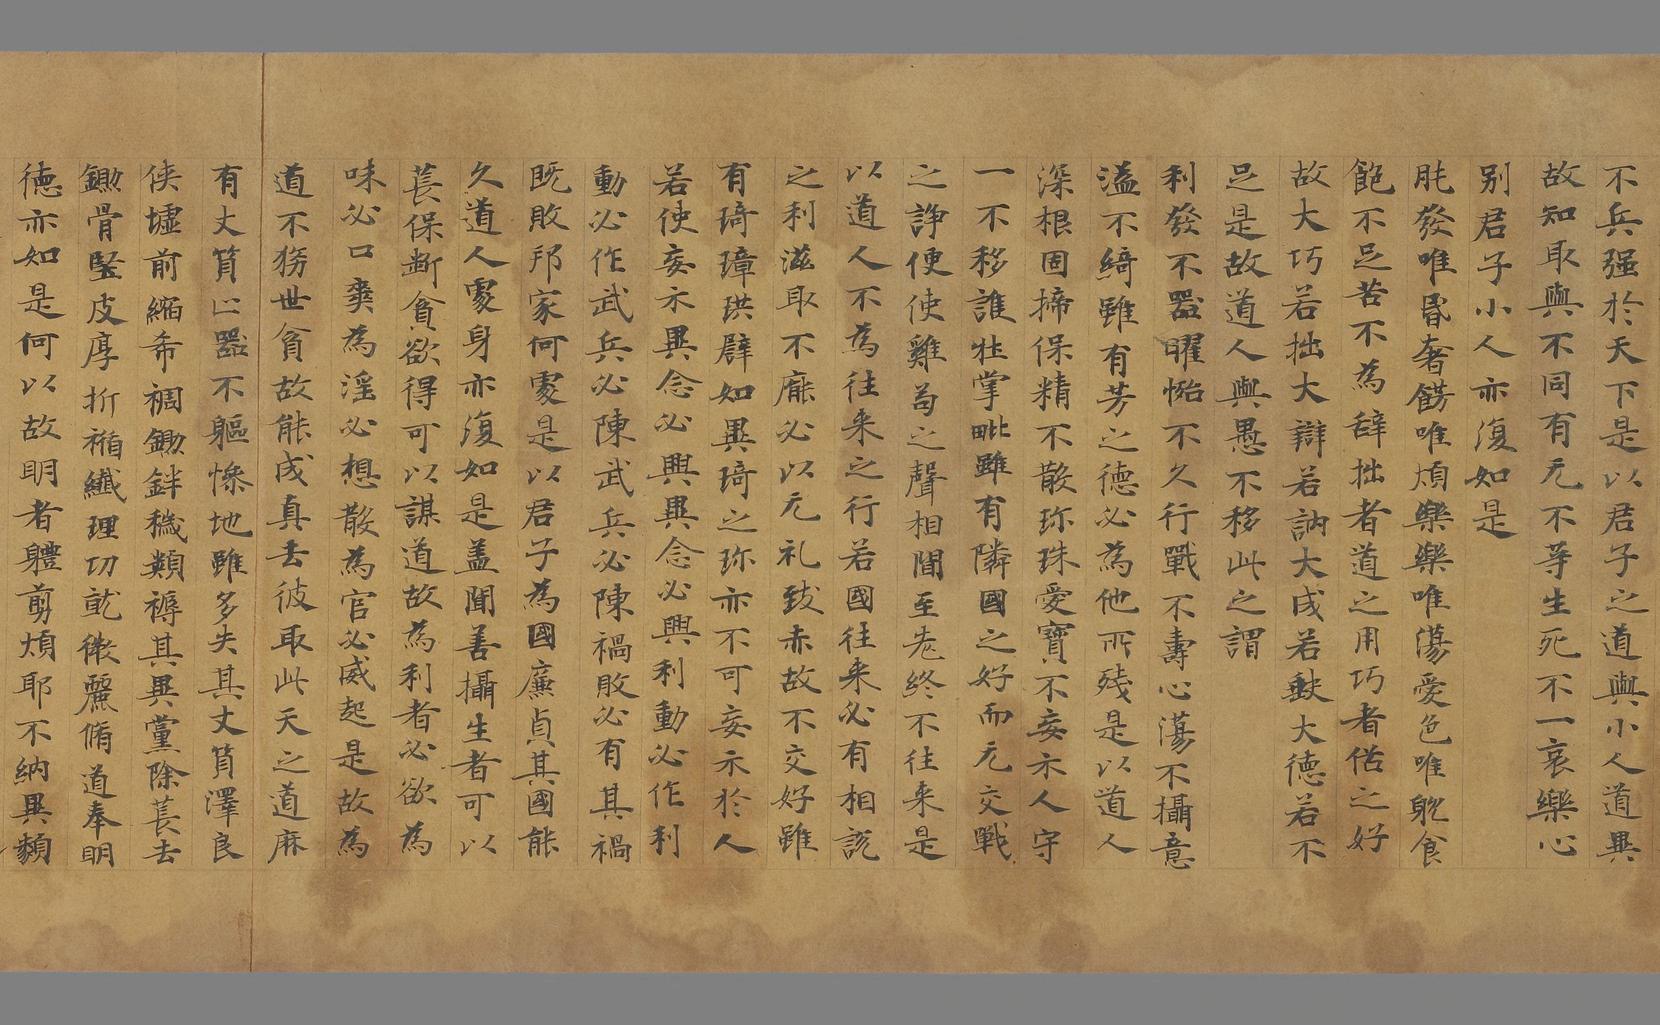 不兵强於天下是以君子之道與小人道異
故知取與不同有无不等生死不一哀樂心
别君子小人亦復如是
肬發唯昬奢餝唯煩樂樂唯蕩愛色唯躭食
飽不足苦不為辞拙者道之用巧者俗之好
故大巧若拙大辯若訥大成若缺大德若不
足是故道人與愚不移此之謂
利發不器曜怡不久行戰不壽心蕩不攝意
溢不綺雖有芳之德必為他所殘是以道人
深根固揥保精不散珎珠愛寶不妄示人守
一不移誰壯掌毗雖有隣國之好而无交戰
之諍使使雞苟之聲相聞至老終不往来是
以道人不為往来之行若國往来必有相説
之利滋取不廉必以无礼致赤故不交好雖
有琦璋珙璧如異琦之珎亦不可妄示於人
若使妄示異念必興異念必興利動必作利
動必作武兵必陳武兵必陳禍敗必有其禍
既敗邦家何䖏是以君子為國廉貞其國能
久道人䖏身亦復如是盖聞善攝生者可以
萇保斷貪欲得可以謀道故為利者必欲為
味必口爽為淫必想散為官必威起是故為
道不務世貪故能成真去彼取此天之道麻
有丈篔器不軀慘地雖多失其丈篔澤良
侠墟前縮希裯鋤鉡穢類褥其異黨除萇去
鋤骨堅皮厚折䄂纖理切乾徵麗脩道奉明
德亦如是何以故明者體剪煩耶不納異類